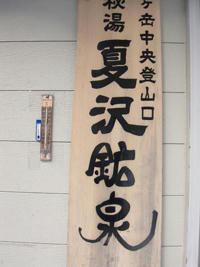 ヶ岳中央登山口
秘湯
夏沢鉱泉